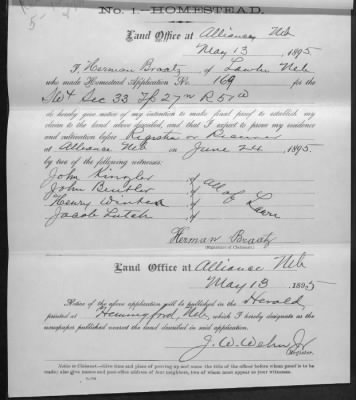 No. 1.—HOMESTEAD.
Land Office at Alliance Neb
May 13, 1895
I, Herman Braatz, of Lawn Neb
who made Homestead Application No. 169 for the
Sec 33 Tp 27 n R 50 w
do hereby give notice of my intention to make final proof to establish my
claim to the land above described, and that I expect to prove my residence
and cultivation before Register or Receiver
at Alliance Neb on June 24, 1895
by two of the following witnesses:
John of All of Lawn
John of
Henry of
Jacob of
Herman Braatz
(Signature of Claimant.)
Land Office at Alliance Neb
May 13 1895
Notice of the above application will be published in the Herald
printed at Hemingford, Neb, which I hereby designate as the
newspaper published nearest the land described in said application.
J. W. Wehn Jr
Register.
Notice to Claimant.—Give time and place of proving up and name the title of the officer before whom proof is to be
made; also give names and post-office address of four neighbors, two of whom must appear as your witnesses.